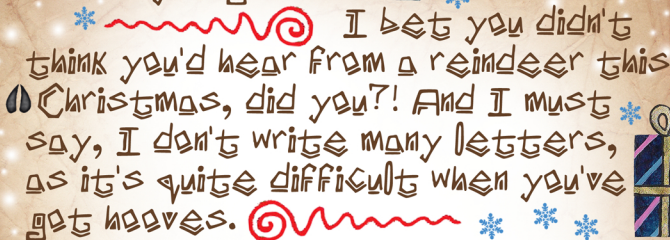 I bet you didn't
think you'd hear from a reindeer this
Christmas, did you?! And I must
say, I don't write many letters,
as it's quite difficult when you've
got hooves.